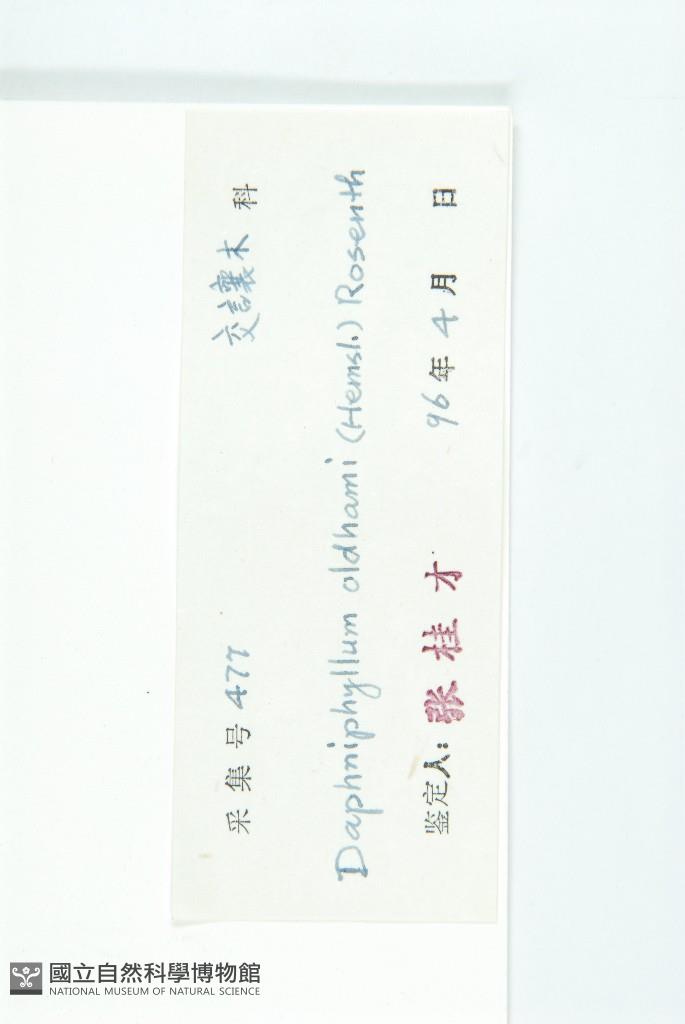 采集号 477 交讓木 科
Daphniphyllum oldhami (Hemsl.) Rosenth
鉴定人: 张桂才 96年 4月 日
國立自然科學博物館
NATIONAL MUSEUM OF NATURAL SCIENCE